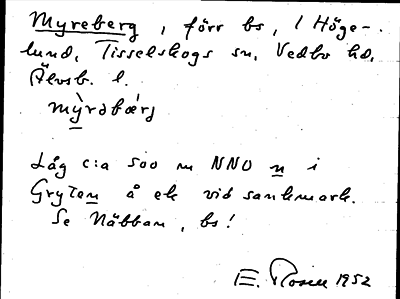 Myreberg, förr bs, l Höge-
lund, Tisselskogs sn, Vedbo hd,
Älvsb. l.
mỳ̱rəbær̀j
Låg c:a 500 m NNO n i
Gryten å ek vid sankmark.
Se Näbban, bs!
E. Rosén 1952